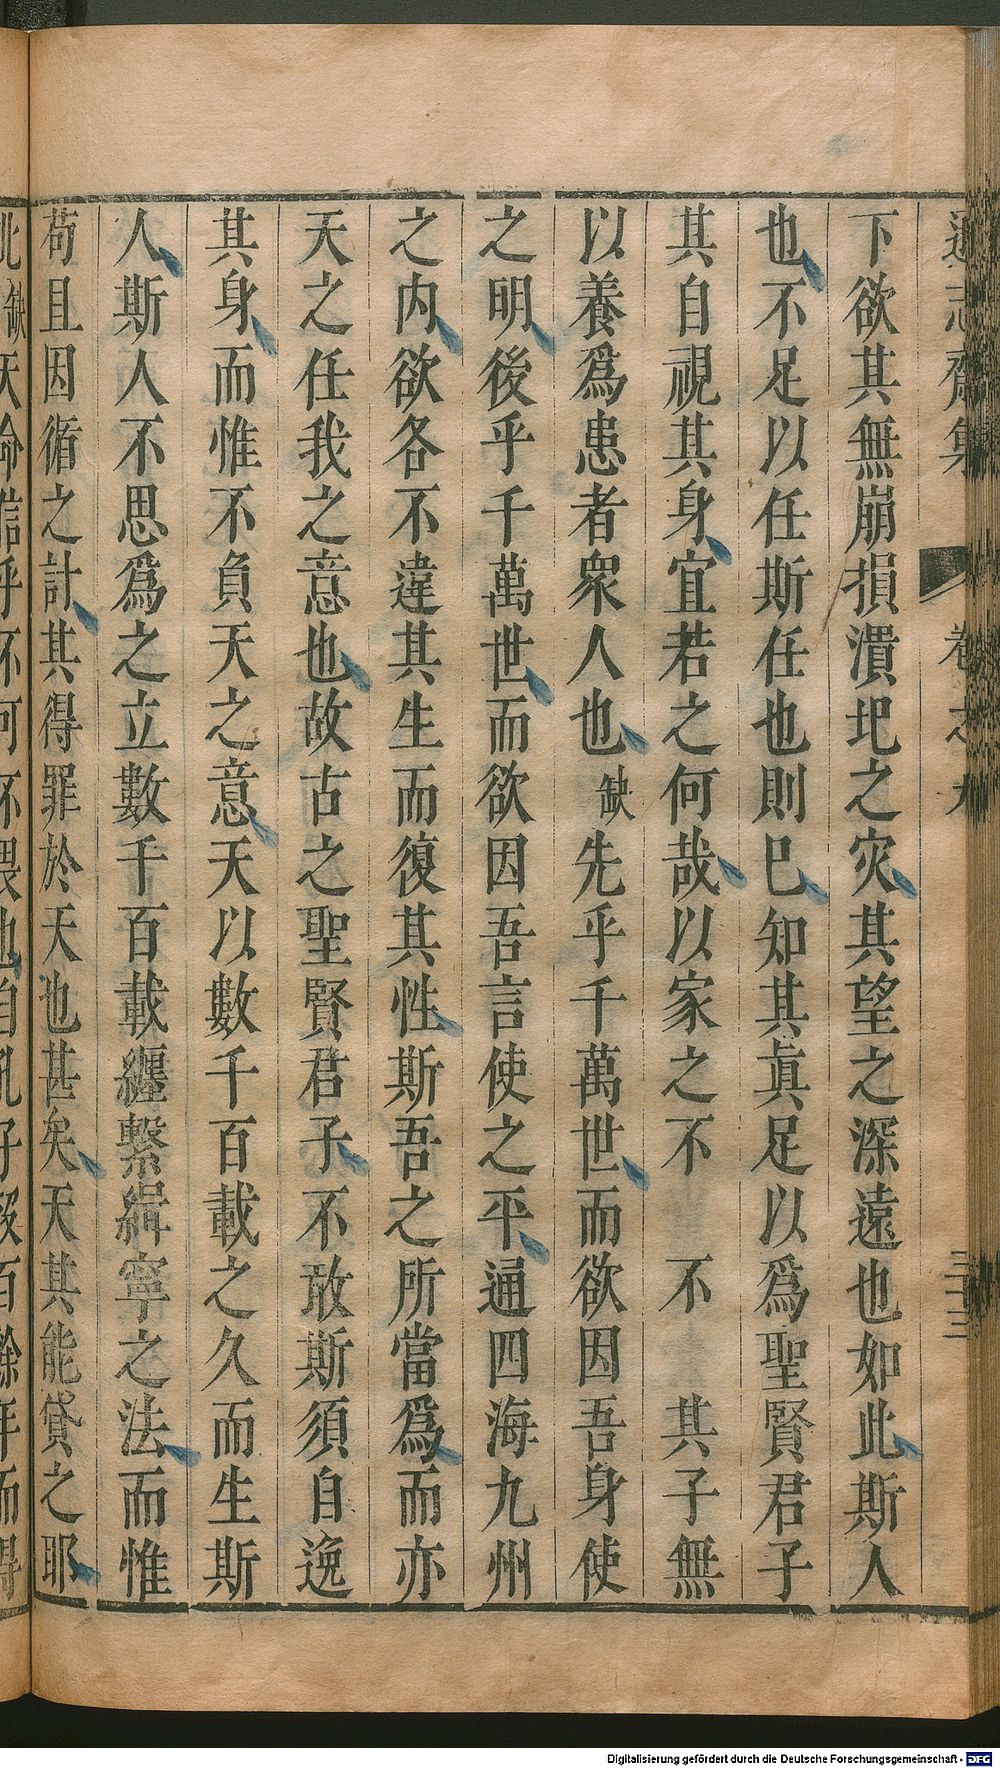 志齋集 卷之九
下欲其無崩損潰圯之灾其望之深遠也如此斯人
也不足以任斯任也則已知其眞足以爲聖賢君子
其自視其身宜若之何哉以家之不 不 其子無
以養爲患者衆人也缺先乎千萬世而欲因吾身使
之明後乎千萬世而欲因吾言使之平通四海九州
之内欲各不違其生而復其性斯吾之所當爲而亦
天之任我之意也故古之聖賢君子不敢斯須自逸
其身而惟不負天之意天以數千百載之久而生斯
人斯人不思爲之立數千百載纒繫緝寧之法而惟
苟且因循之計其得罪於天也甚矣天其能貸之耶
Digitalisierung gefördert durch die Deutsche Forschungsgemeinschaft - DFG